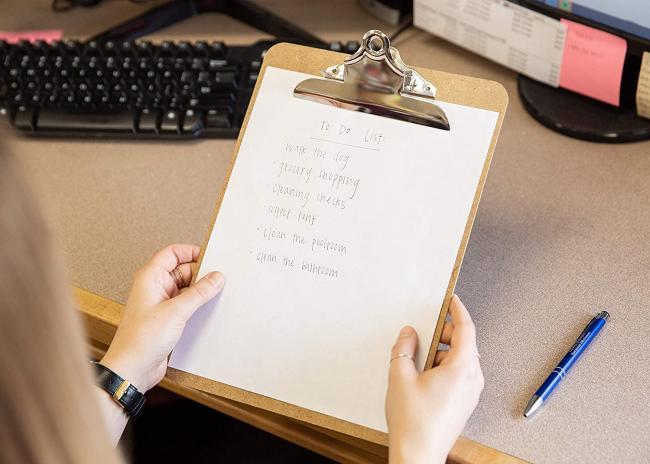 To Do List:
· walk the dog
· grocery shopping
· cleaning checks
· collect rent
· clean the poolroom
· clean the bathroom